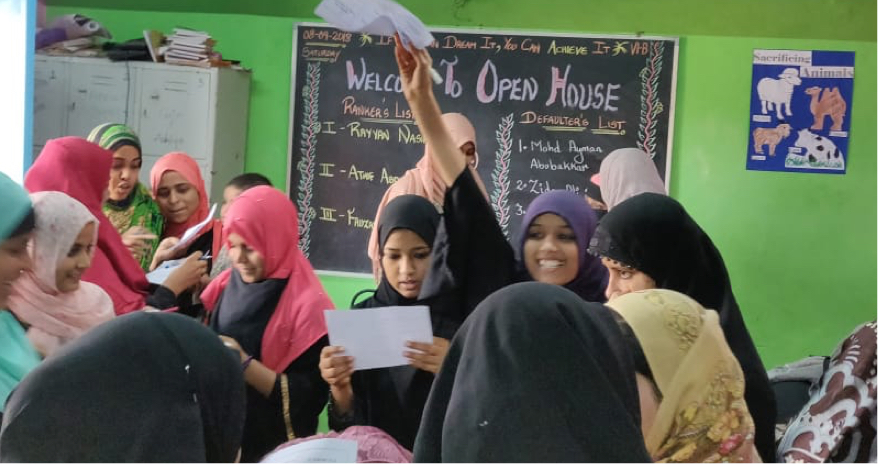 08-09-2018
SATURDAY
IF DREAM IT, YOU CAN ACHIEVE IT VI-B
WELCO To OPEN HOUSE
RANKER'S LIST
I - RAYYAN NAS
II - ATHIF
III -
DEFAULTER'S LIST
1. Mohd Ayman
Abubakkar
2.
3.
Sacrificing
Animals